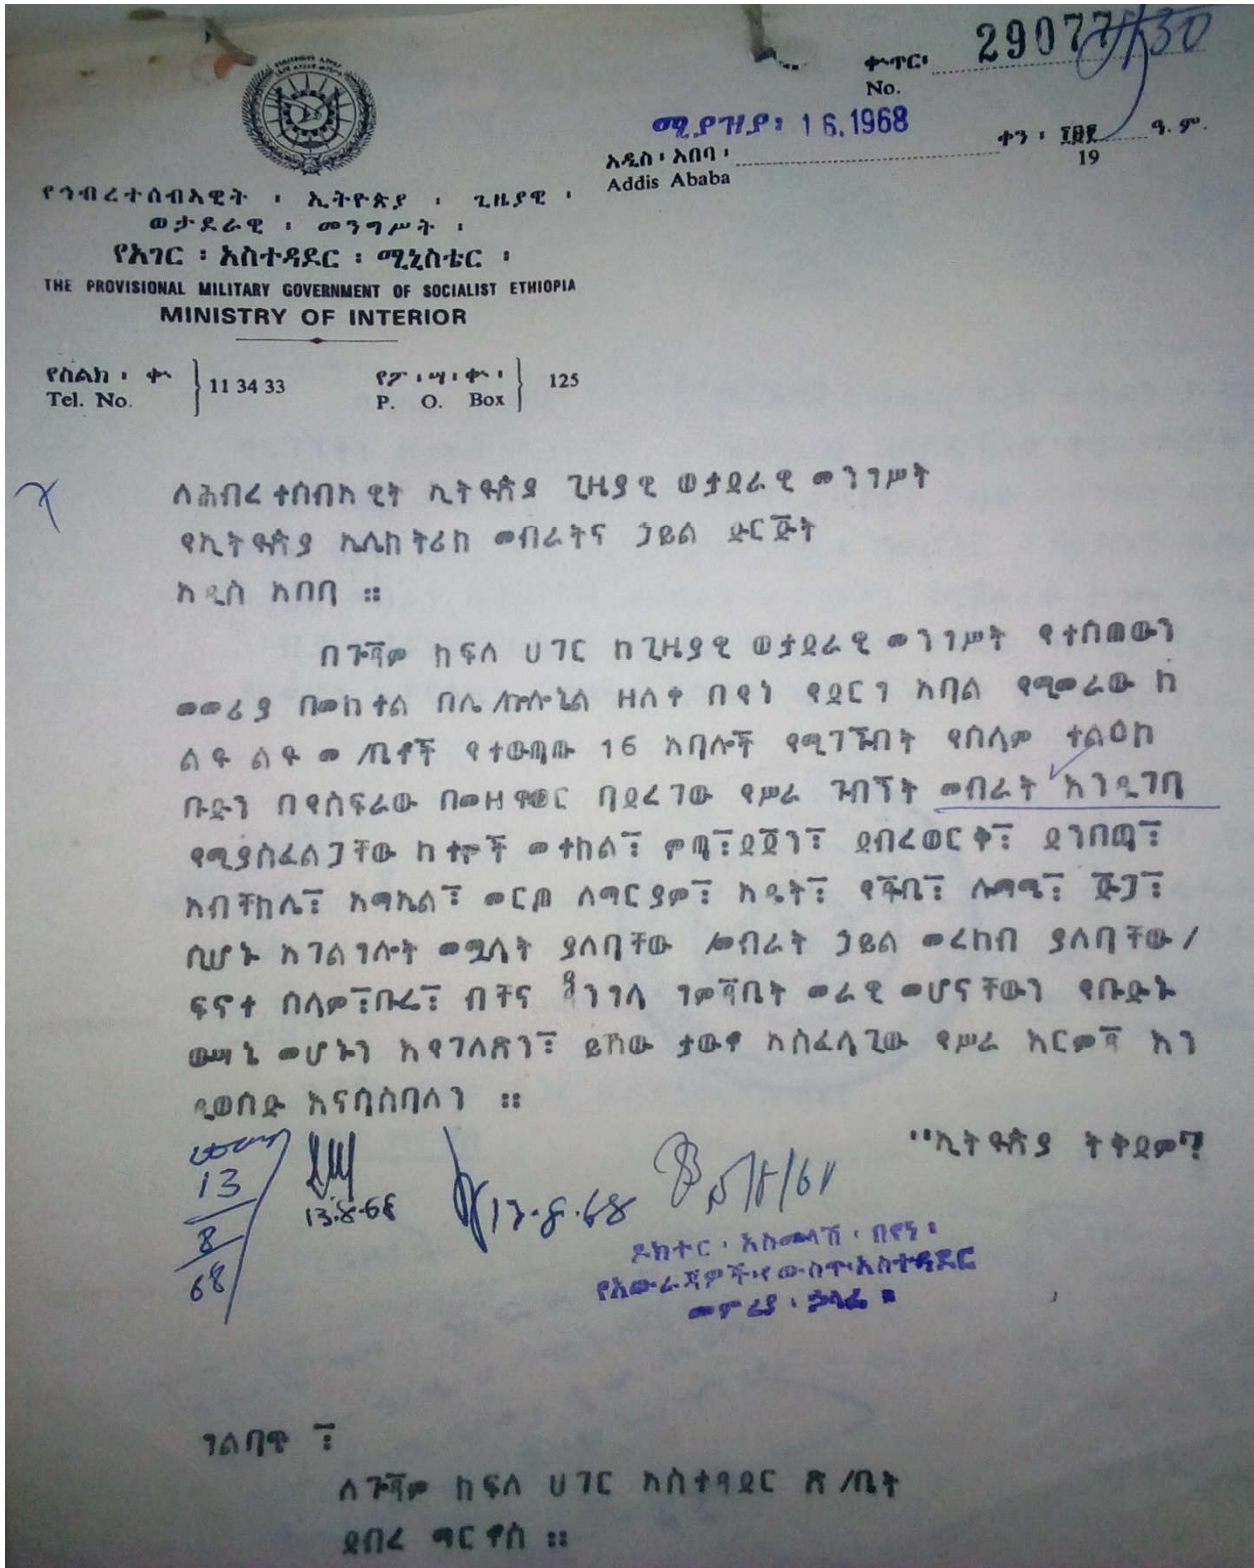 ቍጥር፡ 29077/30
No.
ሚያዝያ፡ 16.1968
አዲስ፡አበባ፡ ቀን፡ ፲፱፻ ዓ.ም.
Addis Ababa 19
የኅብረተሰብአዊት ፡ ኢትዮጵያ ፡ ጊዜያዊ ፡
ወታደራዊ ፡ መንግሥት ፡
የአገር ፡ አስተዳደር ፡ ሚኒስቴር ፡
THE PROVISIONAL MILITARY GOVERNMENT OF SOCIALIST ETHIOPIA
MINISTRY OF INTERIOR
የስልክ ፡ ቍ 11 34 33 የፖ ፡ ሣ ፡ ቍ ፡ 125
Tel. No. P. O. Box
ለሕብረተሰብአዊት ኢትዮጵያ ጊዜያዊ ወታደራዊ መንገሥት
የኢትዮጵያ ኤሌክትሪክ መብራትና ኃይል ድርጅት
አዲስ አበባ ።
በጐጃም ክፍለ ሀገር ከጊዜያዊ ወታደራዊ መንገሥት የተሰወውን
መመሪያ በመከተል በሌ/ኮሎኔል ዘለቀ በየነ የደርገ አባል የሚመራው ከ
ልዩ ልዩ መ/ቤቶች የተውጣጡ 16 አባሎች የሚገኙበት የሰላም ተልዕከ
ቡድን በየስፍራው በመዘዋወር ባደረገው የሥራ ጉብኝት መብራት እንዲገባ
የሚያስፈልጋቸው ከተሞች መተከል፣ ሞጣ፣ደጀን፣ ደብረወርቅ፣ ደንበጫ፣
አብቸክሌ፣ አማኤል፣ መርጦ ለማርያም፣ አዴት፣ የጁቤ፣ ሉማሜ፣ ጅጋ፣
ሲሆኑ አገልገሎት መሟላት ያለባቸው /መብራት ኃይል መረከብ ያለባቸው/
ፍኖተ ሰላም፣ቡሬ፣ ብቸና ዳንገላ ገምጃቤት መራዊ መሆናቸውን የቡድኑ
ውሣኔ መሆኑን እየገለጽን፣ ይኸው ታውቆ አስፈላጊው የሥራ እርምጃ እን
ዲወሰድ እናሳስባለን ።
"ኢትዮጵያ ትቅደም"
13
8
68
13.8.68
13.8.68
ዶክተር ፡ አስመላሽ ፡ በየነ ፡
የአውራጃዎች፡የውስጥ፡አስተዳደር
መምሪያ ፡ ኃላፊ ።
ገልባጭ ፣
ለጐጃም ክፍለ ሀገር አስተዳደር ጽ/ቤት
ደብረ ማርቆስ ።